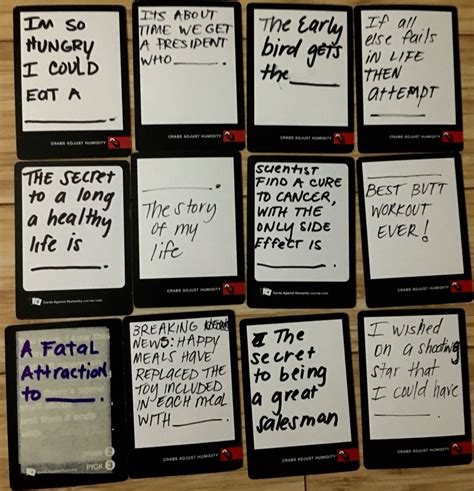 IM SO
HUNGRY
I COULD
EAT A
________.
CRABS ADJUST HUMIDITY
ITS ABOUT
TIME WE GET
A PRESIDENT
WHO _____.
CRABS ADJUST HUMIDITY
The Early
bird gets
the ____.
CRABS ADJUST HUMIDITY
If all
else fails
in LIFE
THEN
attempt
______.
CRABS ADJUST HUMIDITY
THE SECRET
to a long
a healthy
life is
______.
Cards Against Humanity
________.
The story
of my
life
CRABS ADJUST HUMIDITY
SCIENTIST
FIND A CURE
TO CANCER,
WITH THE
ONLY SIDE
EFFECT IS
______.
Cards Against Humanity
________
BEST BUTT
WORKOUT
EVER!
CRABS ADJUST HUMIDITY
A Fatal
Attraction
to ____.
PICK 3
BREAKING
NEWS: HAPPY
MEALS HAVE
REPLACED THE
TOY INCLUDED
IN EACH MEAL
WITH ______.
CRABS ADJUST HUMIDITY
The
secret
to being
a great
salesman
CRABS ADJUST HUMIDITY
I wished
on a shooting
star that
I could have
________.
CRABS ADJUST HUMIDITY